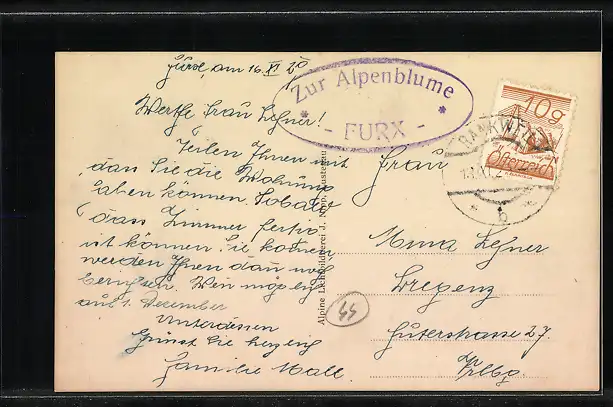 Furx, am 16. XI 
Werthe Frau Lehner!
Teilen Ihnen mit
dass Sie die Wohnung
haben können. Sobald
dass Zimmer fertig
ist können Sie kommen
werden Ihnen dann noch
berichten. Wen möglich
auf 1. Dezember
Unterdessen
Grüsst Sie herzlich
Familie
Zur Alpenblume
* - FURX - *
10g
Österreich
RANKWEIL
* b *
Alpine Lichtbildnerei J.
Frau
Lehner
Bregenz
27.
Vrlbg.
44